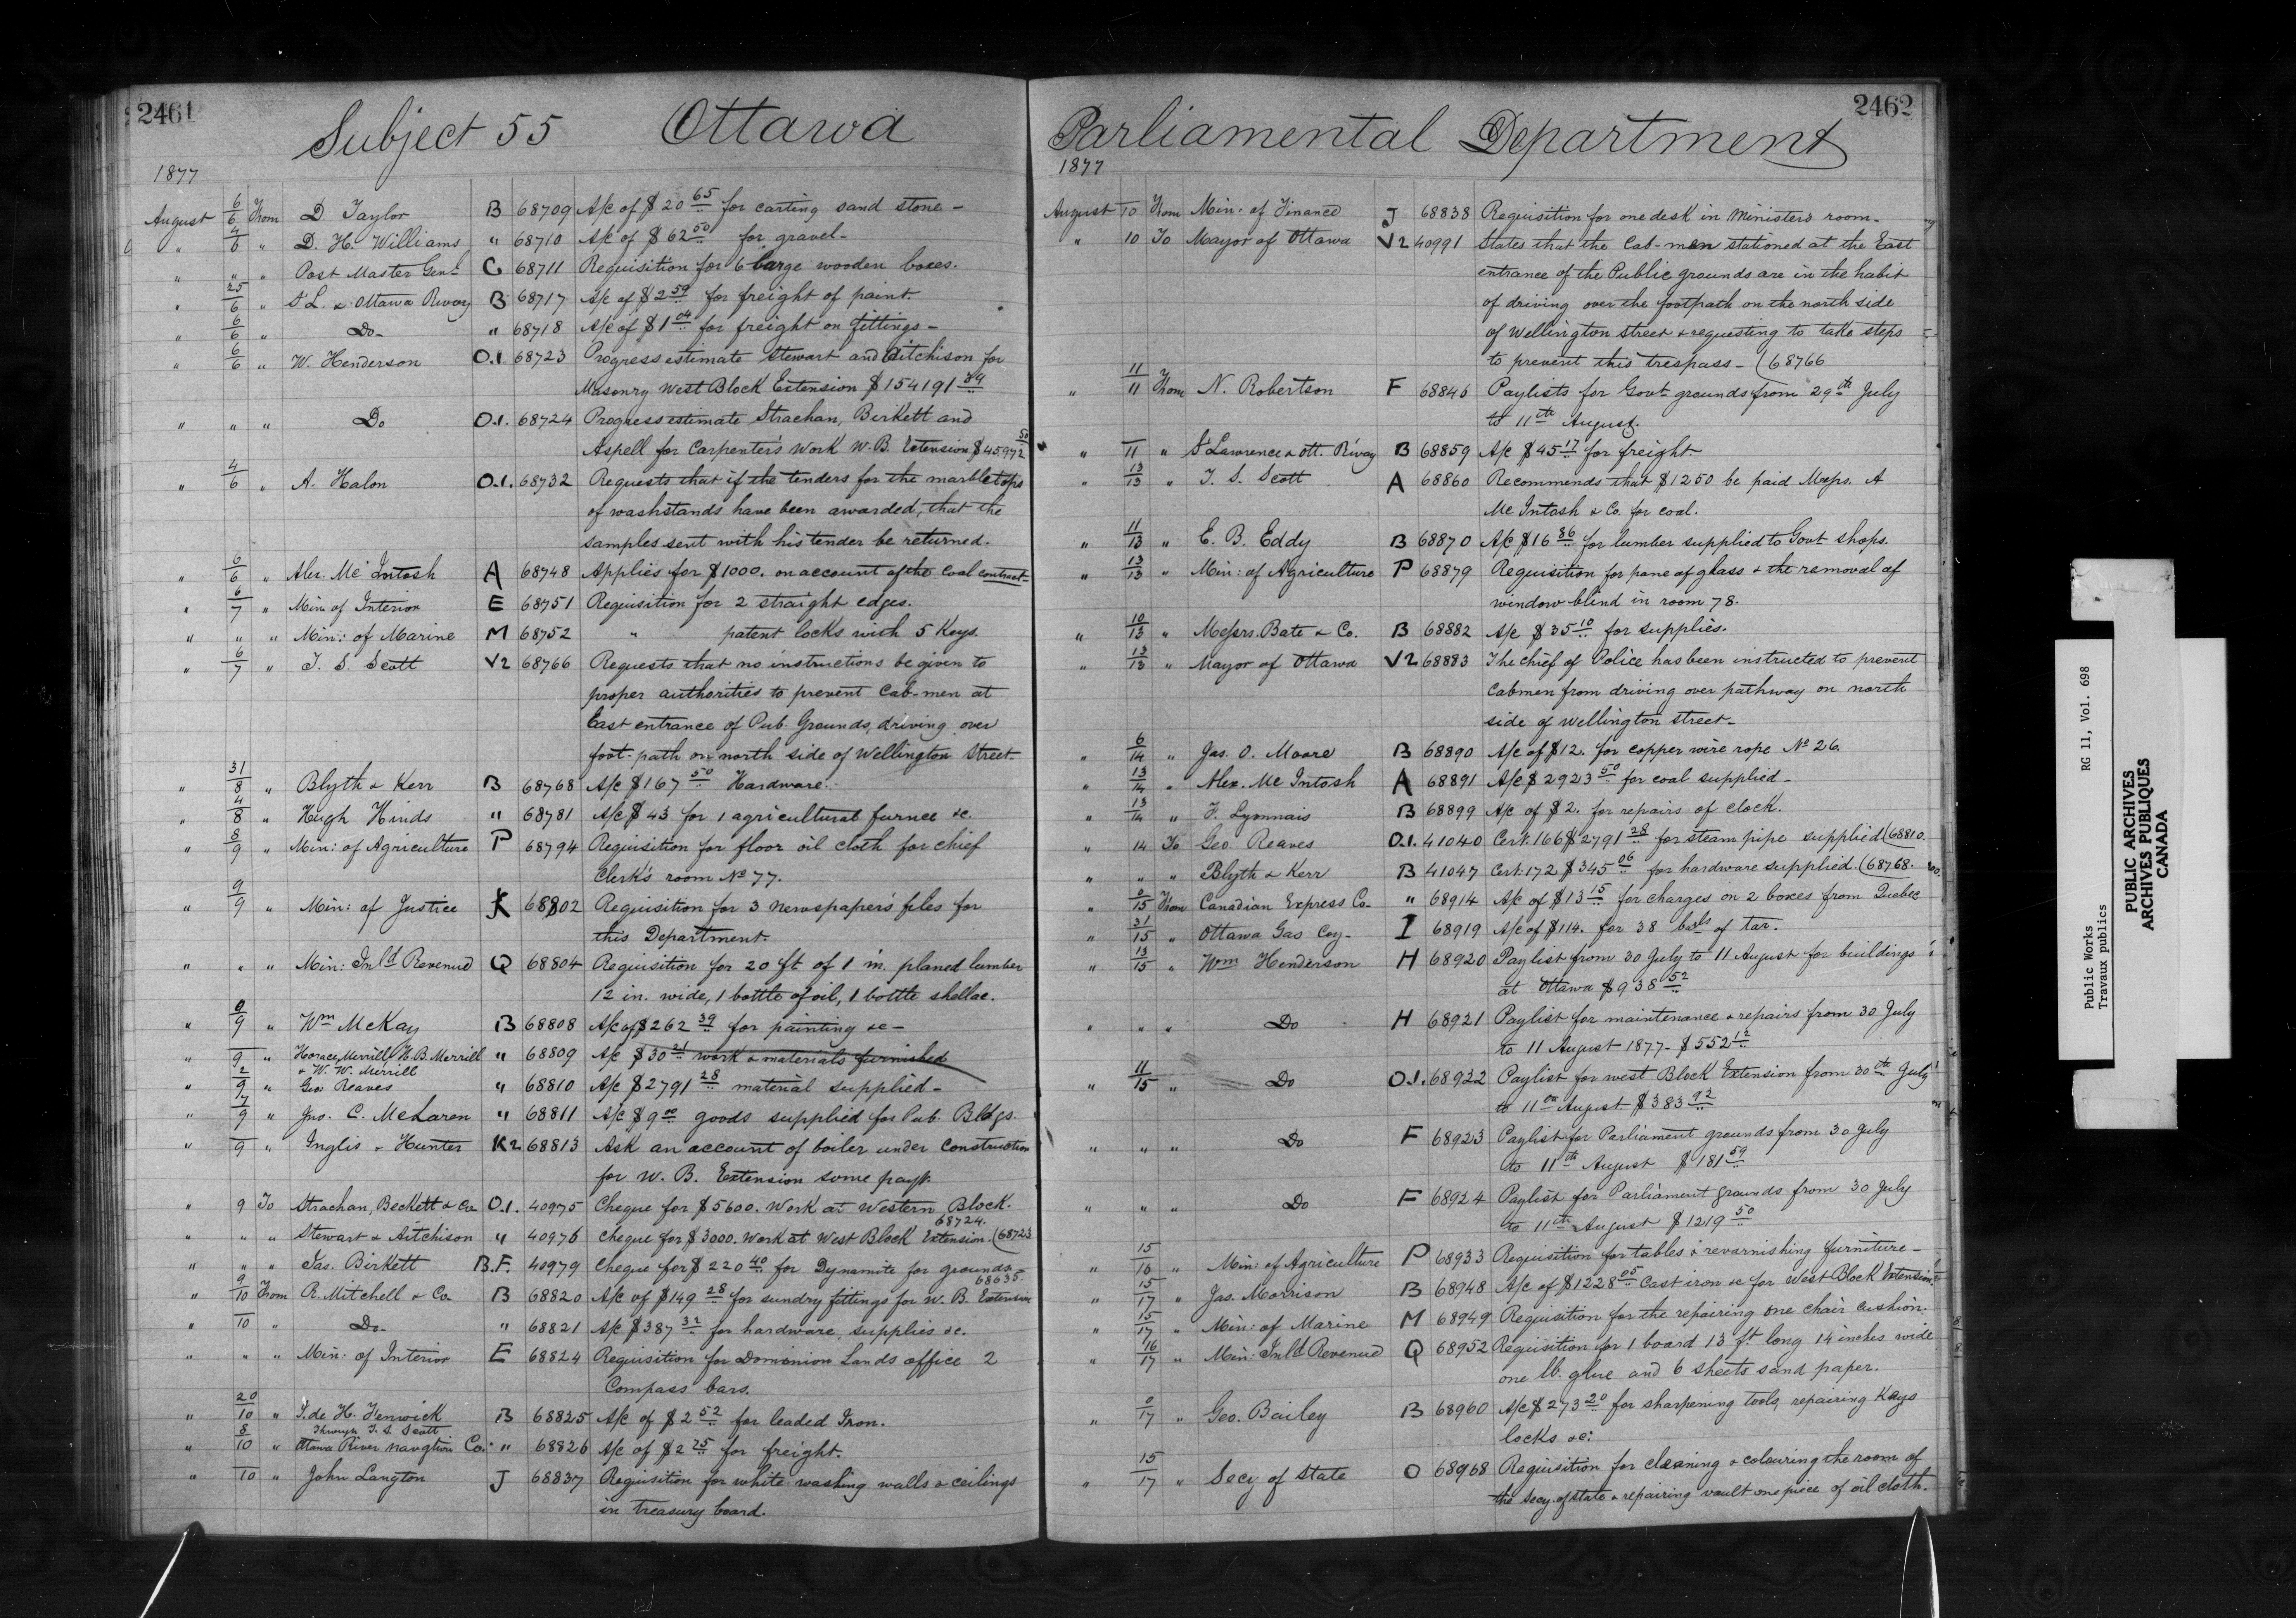 2461
Subject 55 Ottawa
1877
August 6/6 From D. Taylor B 68709 A/c of $20 65 for carting sand stone -
" 4/6 " D. H. Williams " 68710 A/c of $62 50 for gravel -
" " " Post Master Genl. C 68711 Requisition for 6 large wooden boxes.
" 25/6 " St L. & Ottawa Rway B 68717 A/c of $2 59 for freight of paint.
" 6/6 " Do - " 68718 A/c of $1 04 for freight on fittings -
" 6/6 " W. Henderson O.1. 68723 Progress estimate Stewart and Aitchison for
Masonry West Block Extension $154191 39
" " " Do O.1. 68724 Progress estimate Strachan, Birkett and
Aspell for Carpenter's Work W.B. Extension $45972 50
" 4/6 " A. Halon O.1. 68732 Requests that if the tenders for the marble tops
of washstands have been awarded, that the
samples sent with his tender be returned.
" 6/6 " Alex. Mc Intosh A 68748 Applies for $1000. on account of the coal contract
" 6/7 " Min of Interior E 68751 Requisition for 2 straight edges.
" " " Min: of Marine M 68752 " patent locks with 5 Keys.
" 6/7 " T. S. Scott V2 68766 Requests that no instructions be given to
proper authorities to prevent Cab-men at
East entrance of Pub. Grounds, driving over
foot-path on north side of Wellington Street -
" 31/8 " Blyth & Kerr B 68768 A/c $167 50 Hardware.
" 4/8 " Hugh Hinds " 68781 A/c $43 for 1 agricultural furnce &c.
" 8/9 " Min: of Agriculture P 68794 Requisition for floor oil cloth for chief
Clerk's room No 77.
" 9/9 " Min: of Justice K 68802 Requisition for 3 newspaper's files for
this Department.
" " " Min: Inld Revenue Q 68804 Requisition for 20 ft of 1 in. planed lumber
12 in. wide, 1 bottle of oil, 1 bottle shellac.
" 0/9 " Wm McKay B 68808 A/c of $262 39 for painting &c -
" 9 " Horace Merrill, H.B. Merrill " 68809 A/c $30 21 work & materials furnished
& W. W. Merrill
" 2/9 " Geo Reaves " 68810 A/c $2791 28 material supplied -
" 7/9 " Jno. C. McLaren " 68811 A/c $9 00 goods supplied for Pub. Bldgs.
" 9 " Inglis & Hunter K2 68813 Ask an account of boiler under construction
for W. B. Extension some payt.
" 9 To Strachan, Beckett & Co O.1. 40975 Cheque for $5600. Work at Western Block.
68724.
" " " Stewart & Aitchison " 40976 Cheque for $3000. Work at West Block Extension. (68723
" " " Jas. Birkett B.F. 40979 Cheque for $220 40 for Dynamite for grounds
68635.
" 9/10 From R. Mitchell & Co. B 68820 A/c of $149 28 for sundry fittings for W. B. Extension
" 10 " Do - " 68821 A/c $387 32 for hardware, supplies &c.
" " " Min: of Interior E 68824 Requisition for Dominion Lands office 2
Compass bars.
" 20/10 " P. de H. Fenwick B 68825 A/c of $2 52 for leaded Iron.
Through T. S. Scott
" 8/10 " Ottawa River Navgtion Co. " 68826 A/c of $2 25 for freight.
" 10 " John Langton J 68837 Requisition for white washing walls & ceilings
in treasury board.
2462
Parliamental Department
1877
August 10 From Min. of Finance J 68838 Requisition for one desk in Minister's room -
" 10 To Mayor of Ottawa V2 40991 States that the Cab-men stationed at the East
entrance of the Public grounds are in the habit
of driving over the footpath on the north side
of Wellington Street & requesting to take steps
to prevent this trespass - (68766
" 11/11 From N. Robertson F 68846 Paylists for Govt grounds from 29th July
to 11th August.
" 11 " St Lawrence & Ott. R'way B 68859 A/c $45 17 for freight
" 13/13 " T. S. Scott A 68860 Recommends that $1250 be paid Messrs. A
Mc Intosh & Co. for coal.
" 11/13 " E. B. Eddy B 68870 A/c $16 86 for lumber supplied to Govt shops.
" 13/13 " Min: of Agriculture P 68879 Requisition for pane of glass & the removal of
window blind in room 78.
" 10/13 " Messrs. Bate & Co. B 68882 A/c $35 10 for supplies.
" 13/13 " Mayor of Ottawa V2 68883 The chief of Police has been instructed to prevent
Cabmen from driving over pathway on north
side of Wellington Street -
" 6/14 " Jas. O. Moore B 68890 A/c of $12. for copper wire rope No 26.
" 13/14 " Alex. Mc Intosh A 68891 A/c $2923 50 for coal supplied -
" 13/14 " F. Lyonnais B 68899 A/c of $2. for repairs of clock.
" 14 To Geo. Reaves O.1. 41040 Cert. 166 $2791 28 for steam pipe supplied (68810.
" " " Blyth & Kerr B 41047 Cert. 172 $345 06 for hardware supplied. (68768.
" 15 From Canadian Express Co - " 68914 A/c of $13 15 for charges on 2 boxes from Quebec
" 31/15 " Ottawa Gas Coy - I 68919 A/c of $114. for 38 barls of tar.
" 13/15 " Wm Henderson H 68920 Paylist from 30 July to 11 August for buildings
at Ottawa $938 52
" " " Do H 68921 Paylist for maintenance & repairs from 30 July
to 11 August 1877 - $552 12
" 11/15 " Do O.1. 68922 Paylist for West Block Extension from 30th July
to 11th August $383 92
" " " Do F 68923 Paylist for Parliament grounds from 30 July
to 11th August $181 59
" " " Do F 68924 Paylist for Parliament grounds from 30 July
to 11th August $1219 50
" 15/16 " Min: of Agriculture P 68933 Requisition for tables & revarnishing furniture -
" 15/17 " Jas. Morrison B 68948 A/c of $1228 05 Cast iron &c for West Block Extension
" 15/17 " Min: of Marine M 68949 Requisition for the repairing one chair cushion.
" 16/17 " Min: Inld Revenue Q 68952 Requisition for 1 board 13 ft long 14 inches wide
one lb. glue and 6 sheets sand paper.
" 0/17 " Geo. Bailey B 68960 A/c $273 20 for sharpening tools, repairing Keys
locks &c:
" 15/17 " Secy of State O 68968 Requisition for cleaning & colouring the room of
the Secy. of State & repairing vault one piece of oil cloth.
Public Works RG 11, Vol. 698
Travaux publics
PUBLIC ARCHIVES
ARCHIVES PUBLIQUES
CANADA